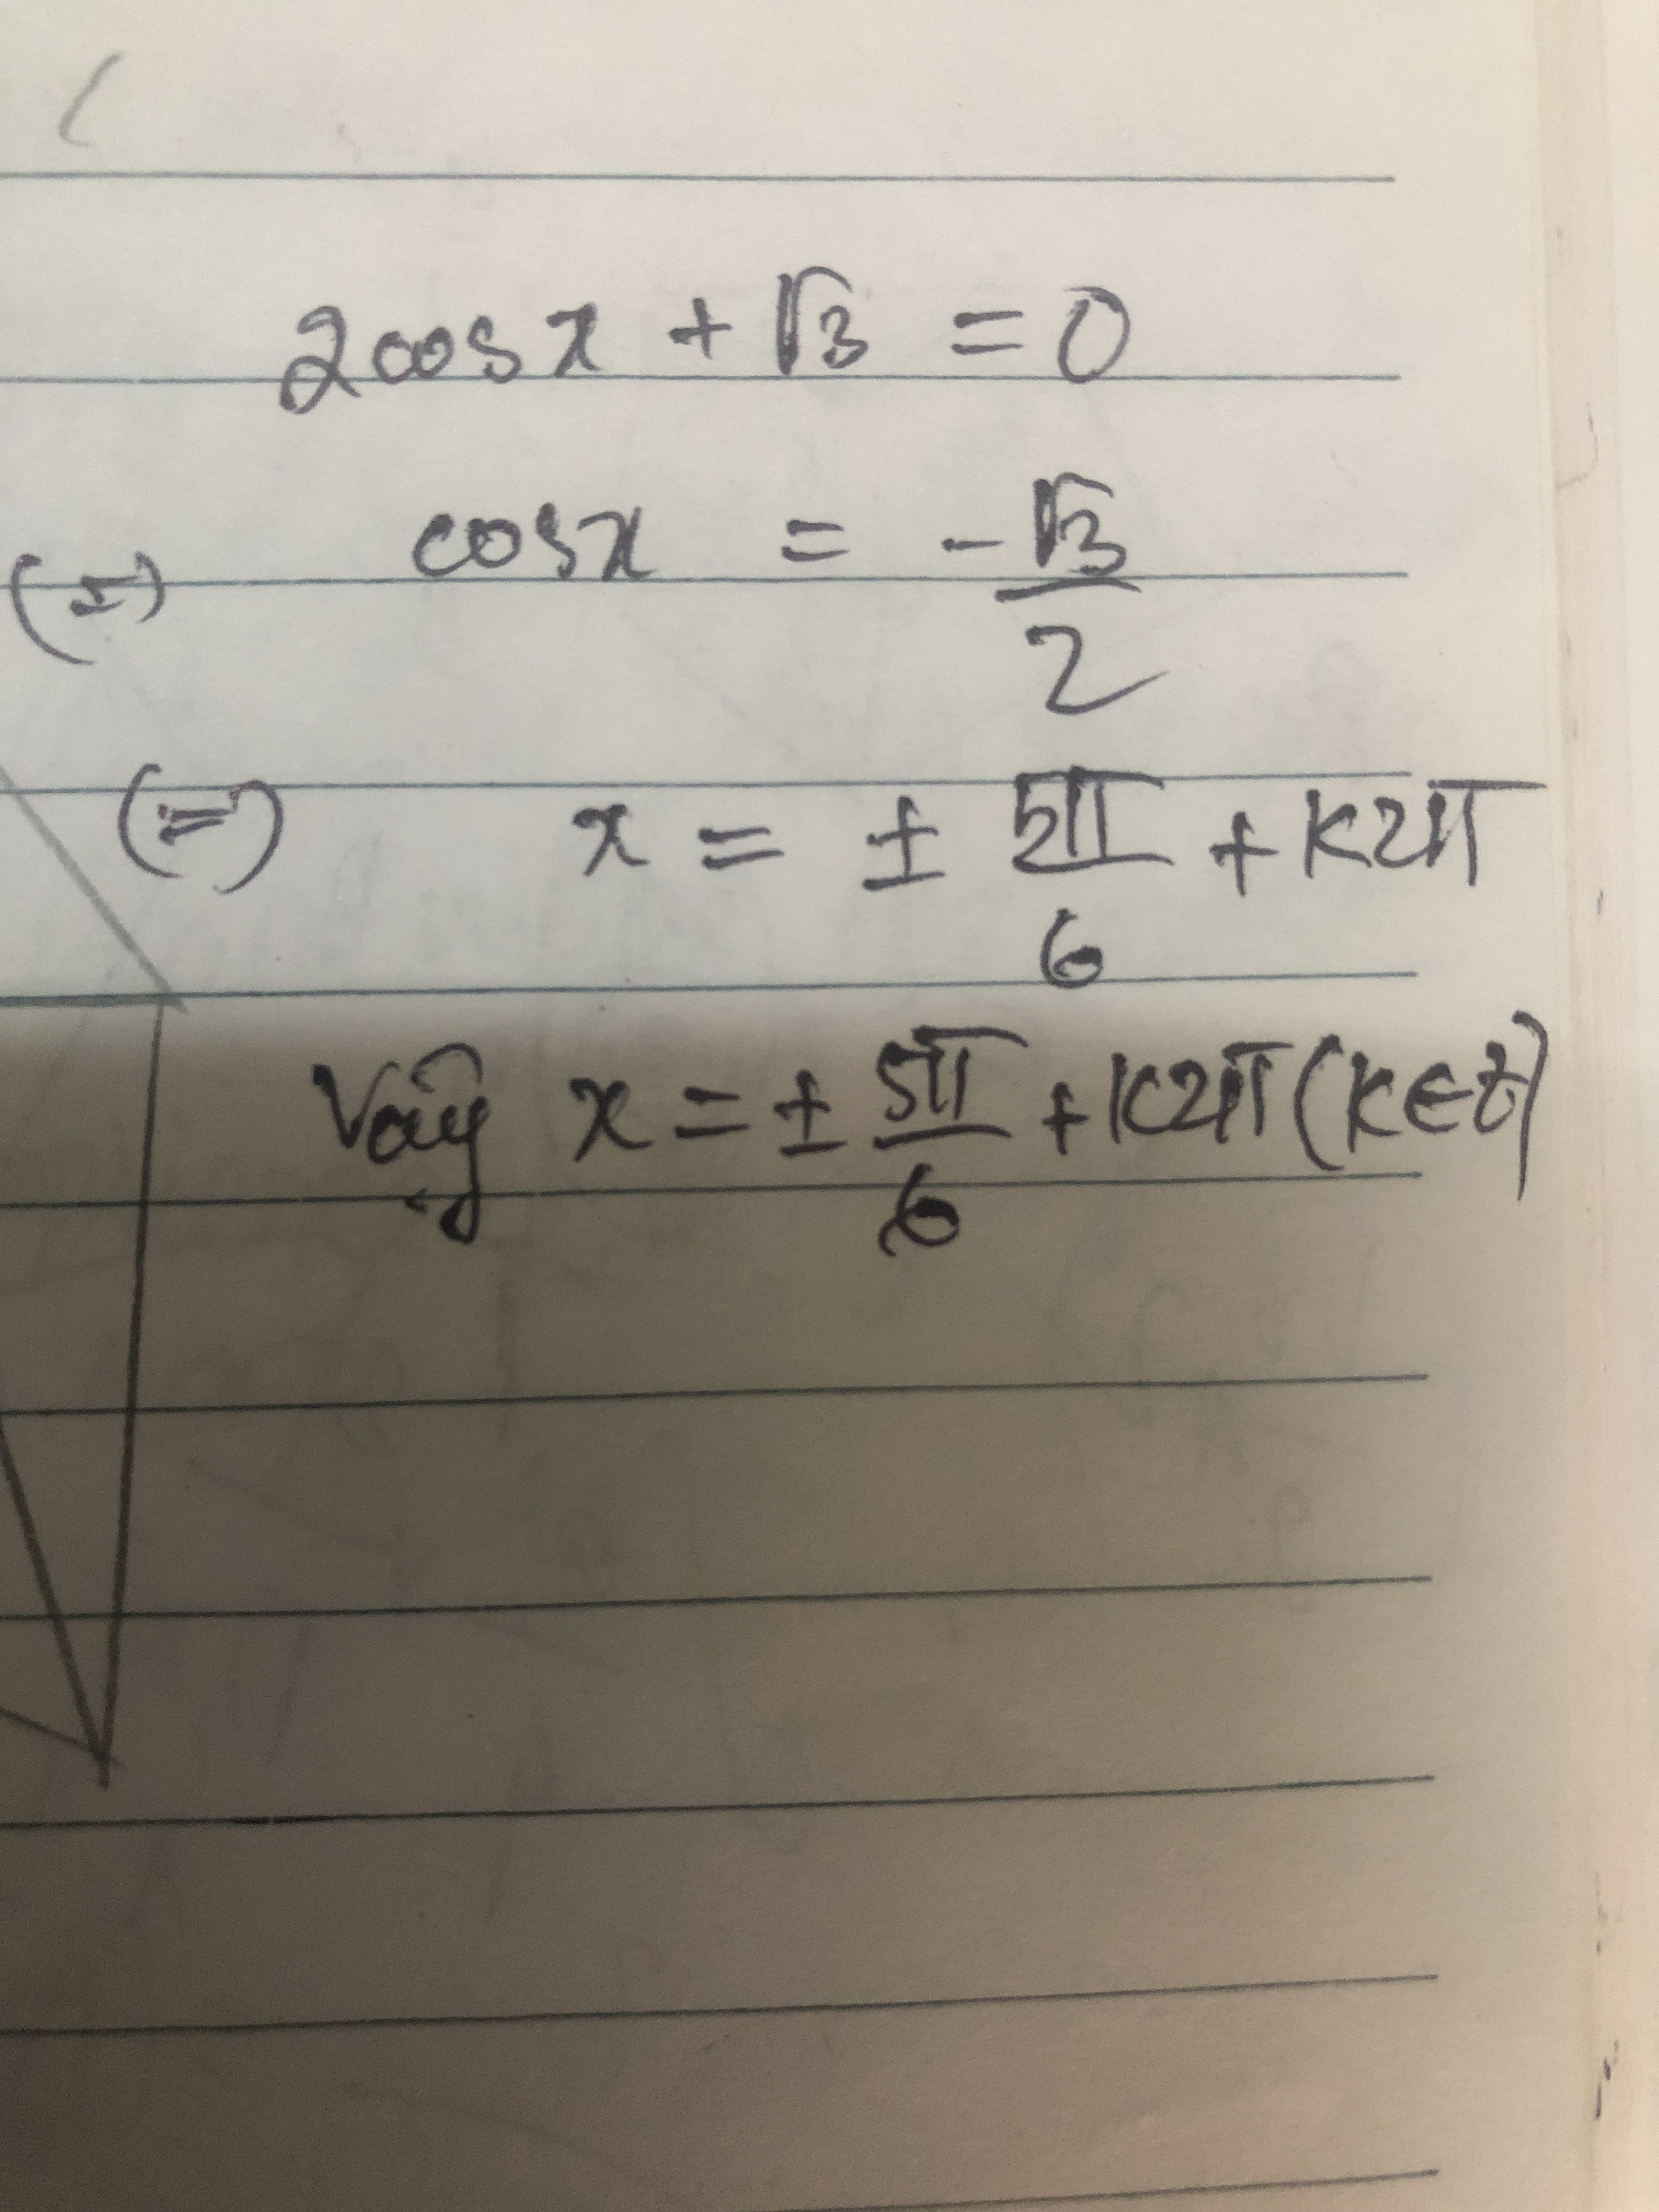 2cosx + √3 = 0
(=) cosx = -√3/2
(=) x = ± 5π/6 + k2π
Vậy x = ± 5π/6 + k2π (k∈Z)